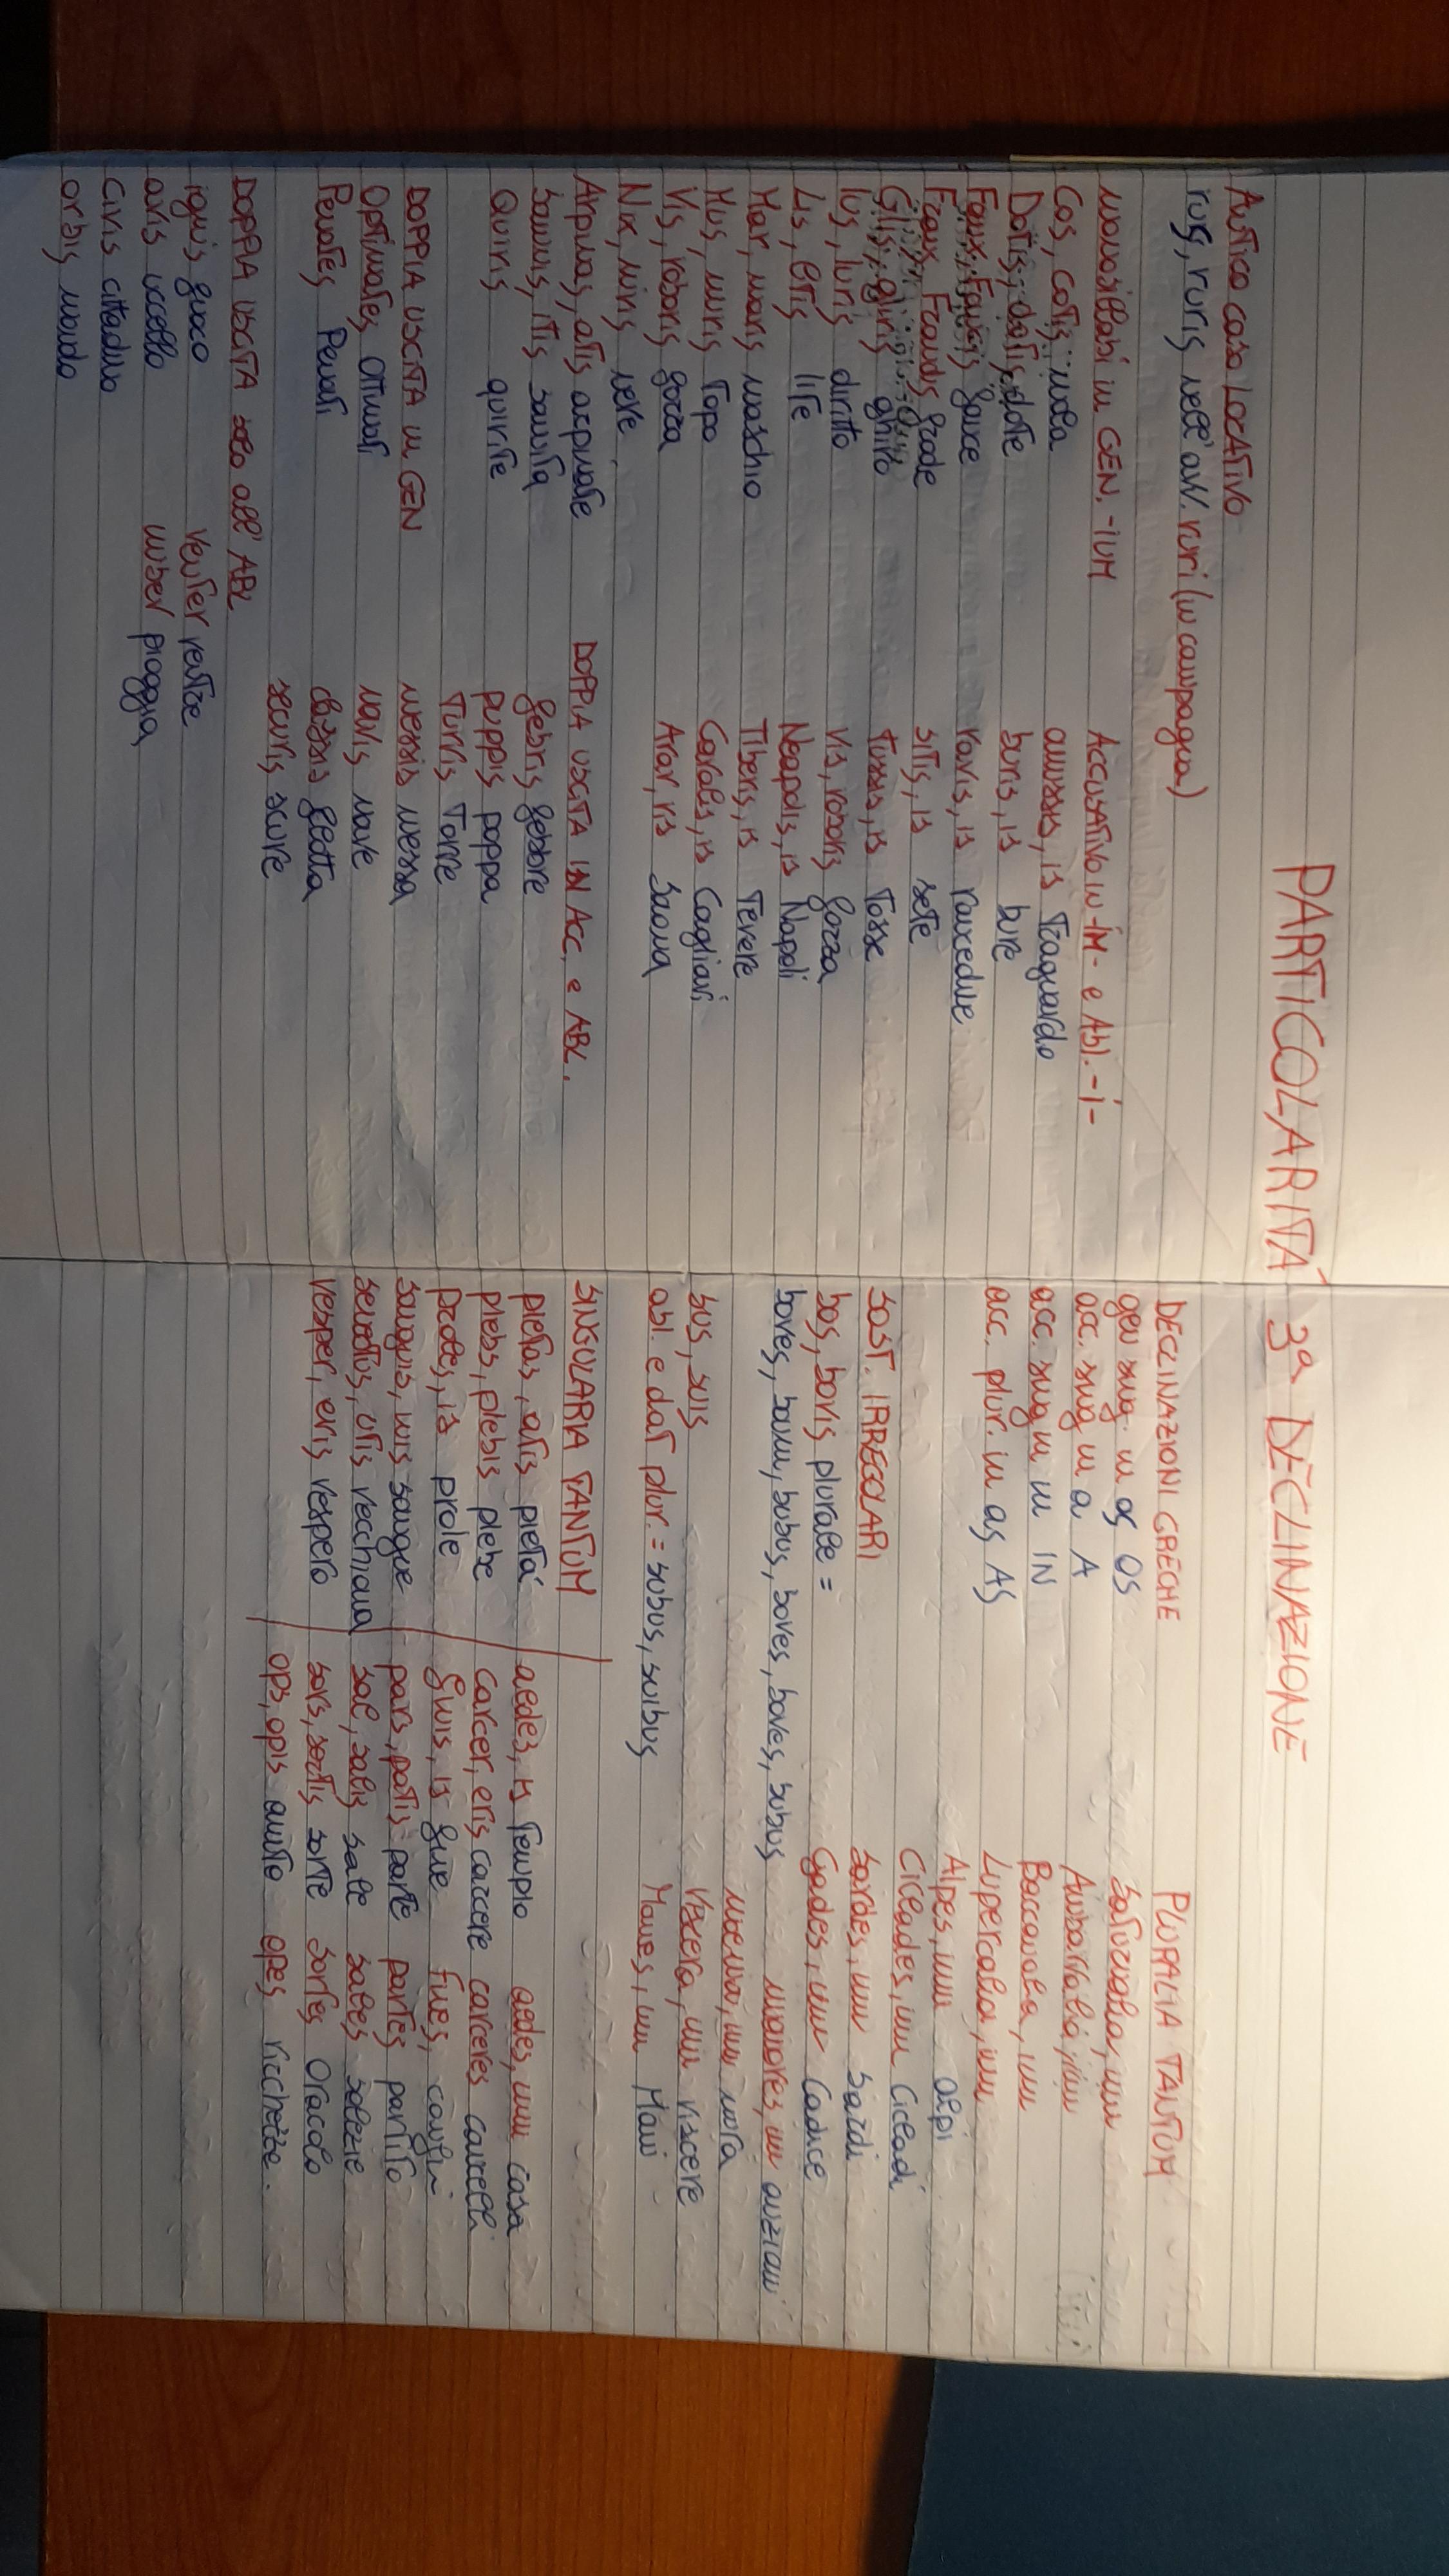 PARTICOLARITÀ 3ª DECLINAZIONE
Antico caso LOCATIVO
rus, ruris nell'avv. ruri (in campagna)
monosillabi in GEN. -IUM
Cos, cotis mola
Dotis, dotis, dote
Faux, Faucis fauce
Fraus, Fraudis frode
Glis, gliris ghiro
Ius, Iuris diritto
Lis, litis lite
Mar, maris maschio
Mus, muris topo
Vis, roboris forza
Nix, nivis neve
Arpinas, atis arpinate
Samnis, itis sannita
Quiris quirite
DOPPIA USCITA in GEN
Optimates, Ottimati
Penates, Penati
DOPPIA USCITA solo all'ABL
ignis fuoco
avis uccello
civis cittadino
orbis, mondo
venter ventre
imber pioggia
Accusativo in -im- e Abl. -i-
amussis, is traguardo
buris, is bure
ravis, is raucedine
sitis, is sete
tussis, is tosse
vis, roboris forza
Neapolis, is Napoli
Tiberis, is Tevere
Caralis, is Cagliari
Arar, ris Saona
DOPPIA USCITA IN ACC. e ABL.
febris febbre
puppis poppa
Turris Torre
messis messa
navis nave
classis flotta
securis, scure
DECLINAZIONI GRECHE
gen sing. in os OS
acc. sing in a A
acc. sing in in IN
acc. plur. in as AS
SOST. IRREGOLARI
bos, bovis plurale =
boves, boum, bobus, boves, boves, bobus
sus, suis
abl. e dat plur. = subus, suibus
SINGULARIA TANTUM
pietas, atis pietá
plebs, plebis plebe
proles, is prole
sanguis, inis sangue
senectus, utis vecchiaia
vesper, eris vespero
aedes, is tempio aedes, ium casa
carcer, eris carcere carceres cancelli
finis, is fine fines, confini
pars, patis parte partes partito
sal, salis sale sales solezie
sors, sortis sorte sortes Oracolo
ops, opis aiuto opes ricchezze.
PLURALIA TANTUM
Saturnalia, ium
Ambarvalia, ium
Baccanalia, ium
Lupercalia, ium
Alpes, ium alpi
Ciclades, um Cicladi
Sardes, ium Sardi
Gades, ium Cadice
maiores, um anziani
moenia, ium mura
Viscera, um viscere
Manes, ium Mani